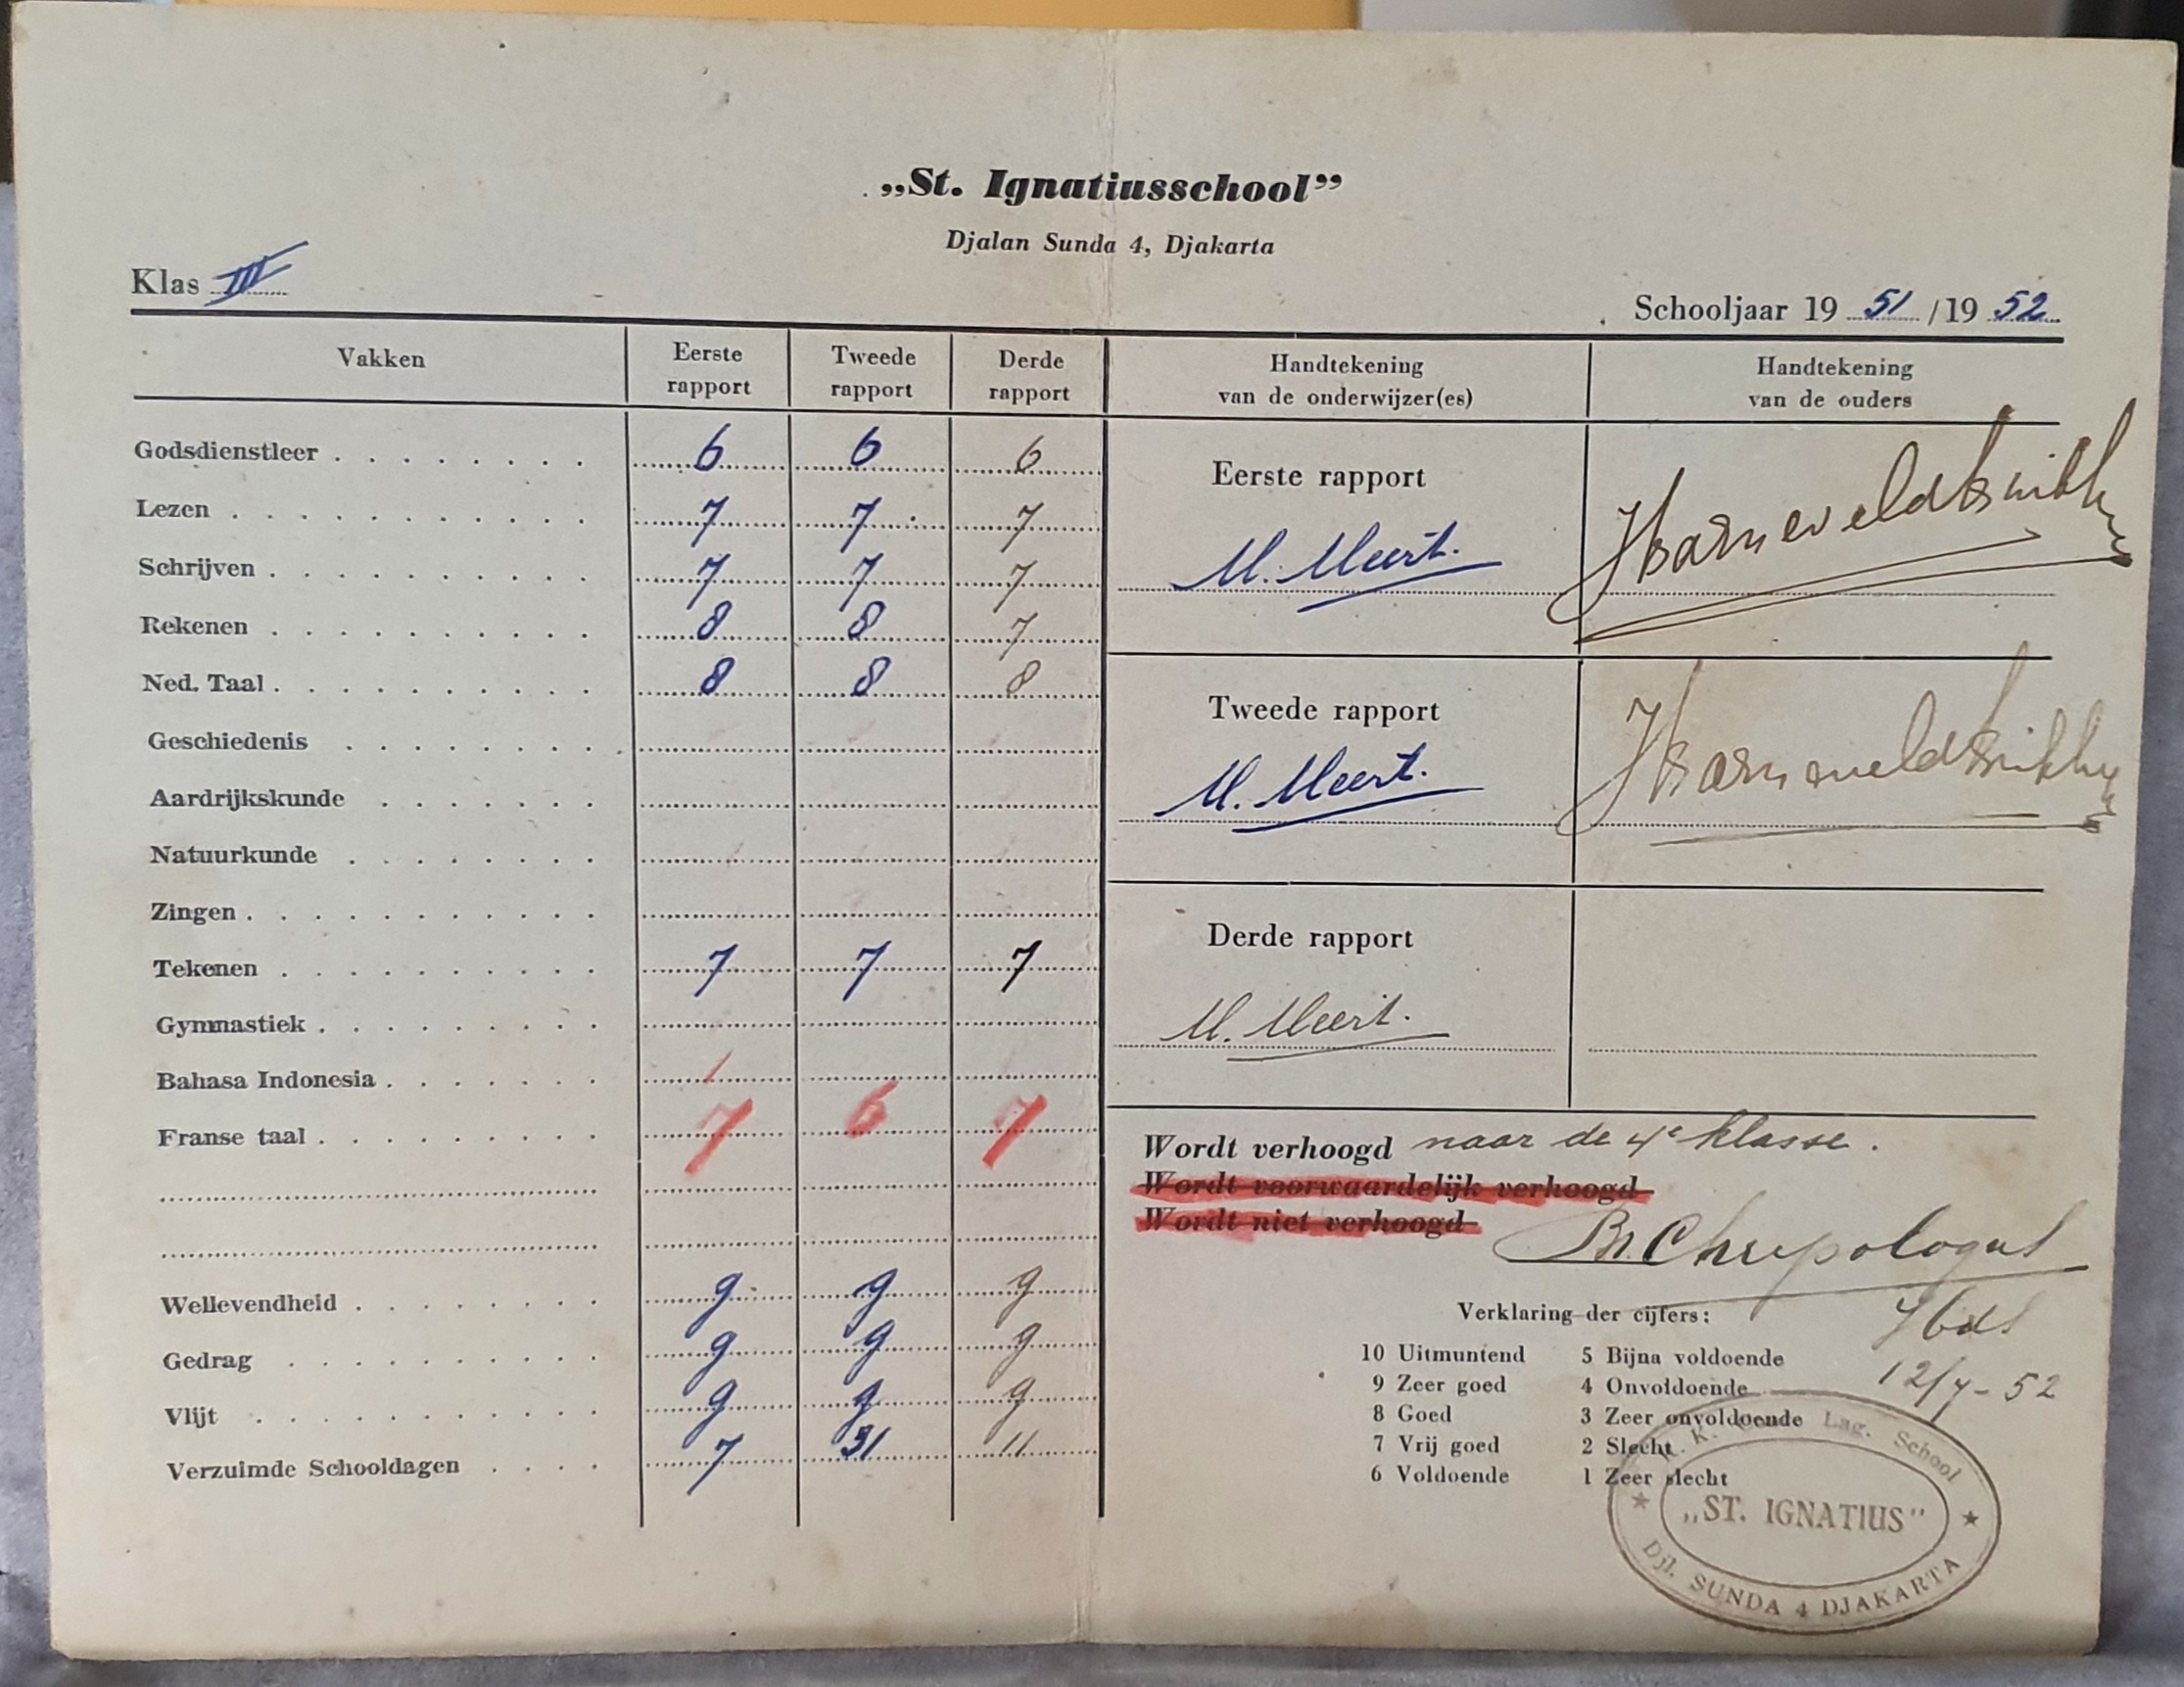 „St. Ignatiusschool”
Djalan Sunda 4, Djakarta
Klas III
Schooljaar 19 51 /19 52
Vakken Eerste rapport Tweede rapport Derde rapport
Handtekening van de onderwijzer(es)
Handtekening van de ouders
Godsdienstleer 6 6 6
Lezen 7 7 7
Schrijven 7 7 7
Rekenen 8 8 7
Ned. Taal 8 8 8
Geschiedenis
Aardrijkskunde
Natuurkunde
Zingen
Tekenen 7 7 7
Gymnastiek
Bahasa Indonesia
Franse taal 7 6 7
Wellevendheid 9 9 9
Gedrag 9 9 9
Vlijt 9 9 9
Verzuimde Schooldagen 7 31 11
Eerste rapport
M. Meert.
Tweede rapport
M. Meert.
Derde rapport
M. Meert.
Wordt verhoogd naar de 4e klasse.
Wordt voorwaardelijk verhoogd
Wordt niet verhoogd
Br. Chrysologus
Verklaring der cijfers:
10 Uitmuntend 5 Bijna voldoende
9 Zeer goed 4 Onvoldoende
8 Goed 3 Zeer onvoldoende
7 Vrij goed 2 Slecht
6 Voldoende 1 Zeer slecht
Hd.
12/7-52
R. K. Lag. School
„ST. IGNATIUS”
Djl. SUNDA 4 DJAKARTA